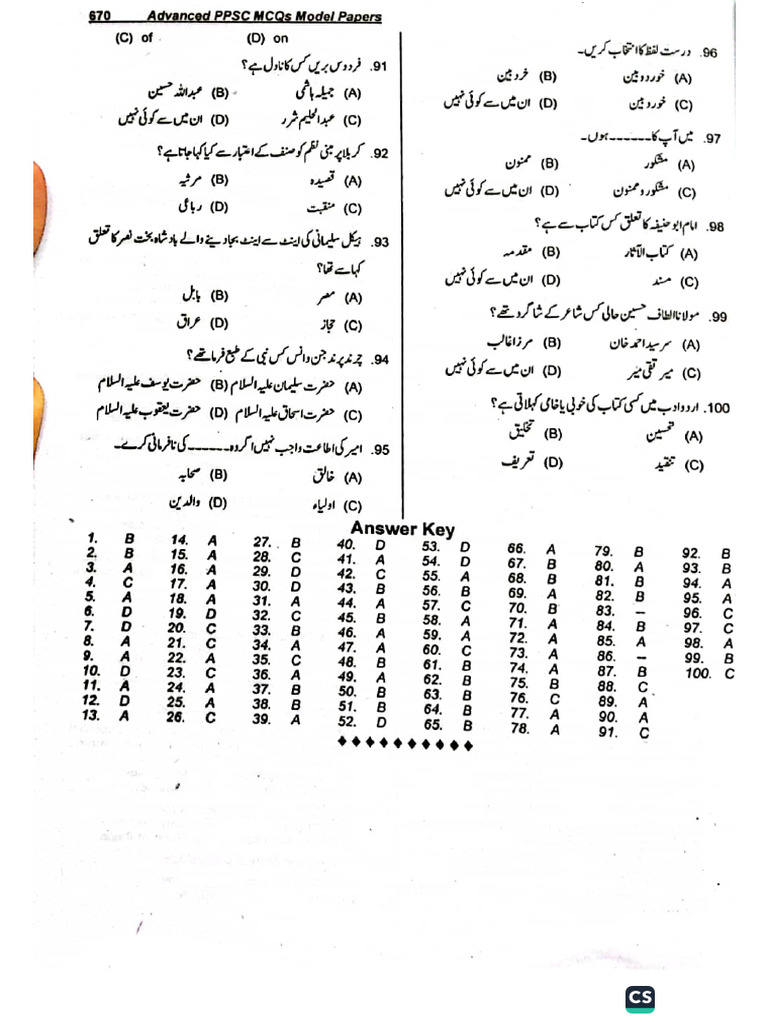 670 Advanced PPSC MCQs Model Papers
(C) of (D) on
91. فردوس بریں کس کا ناول ہے؟
(A) جمیلہ ہاشمی (B) عبداللہ حسین
(C) عبدالحلیم شرر (D) ان میں سے کوئی نہیں
92. کربلا پر مبنی نظم کو صنف کے اعتبار سے کیا کہا جاتا ہے؟
(A) قصیدہ (B) مرثیہ
(C) منقبت (D) رباعی
93. ہیکل سلیمانی کی اینٹ سے اینٹ بجا دینے والے بادشاہ بخت نصر کا تعلق
کہا سے تھا؟
(A) مصر (B) بابل
(C) حجاز (D) عراق
94. چرند پرند جن وانس کس نبی کے طبع فرما تھے؟
(A) حضرت سلیمان علیہ السلام (B) حضرت یوسف علیہ السلام
(C) حضرت اسحاق علیہ السلام (D) حضرت یعقوب علیہ السلام
95. امیر کی اطاعت واجب نہیں اگر وہ ------ کی نافرمانی کرے۔
(A) خالق (B) صحابہ
(C) اولیاء (D) والدین
96. درست لفظ کا انتخاب کریں۔
(A) خوردوبین (B) خردبین
(C) خوردبین (D) ان میں سے کوئی نہیں
97. میں آپ کا ------ ہوں۔
(A) مشکور (B) ممنون
(C) مشکور وممنون (D) ان میں سے کوئی نہیں
98. امام ابو حنیفہ کا تعلق کس کتاب سے ہے؟
(A) کتاب الآثار (B) مقدمہ
(C) مسند (D) ان میں سے کوئی نہیں
99. مولانا الطاف حسین حالی کس شاعر کے شاگرد تھے؟
(A) سرسید احمد خان (B) مرزا غالب
(C) میر تقی میر (D) ان میں سے کوئی نہیں
100. اردو ادب میں کسی کتاب کی خوبی یا خامی کہلاتی ہے؟
(A) تحسین (B) تخلیق
(C) تنقید (D) تعریف
Answer Key
1. B 14. A 27. B 40. D 53. D 66. A 79. B 92. B
2. B 15. A 28. C 41. A 54. D 67. B 80. A 93. B
3. A 16. A 29. D 42. C 55. A 68. B 81. B 94. A
4. C 17. A 30. D 43. B 56. B 69. A 82. B 95. A
5. A 18. A 31. A 44. A 57. C 70. B 83. – 96. C
6. D 19. D 32. C 45. B 58. A 71. A 84. B 97. C
7. D 20. C 33. B 46. A 59. A 72. A 85. A 98. A
8. A 21. C 34. A 47. A 60. C 73. A 86. – 99. B
9. A 22. A 35. C 48. B 61. B 74. A 87. B 100. C
10. D 23. C 36. A 49. A 62. B 75. B 88. C
11. A 24. A 37. B 50. B 63. B 76. C 89. A
12. D 25. A 38. B 51. B 64. B 77. A 90. A
13. A 26. C 39. A 52. D 65. B 78. A 91. C
CS